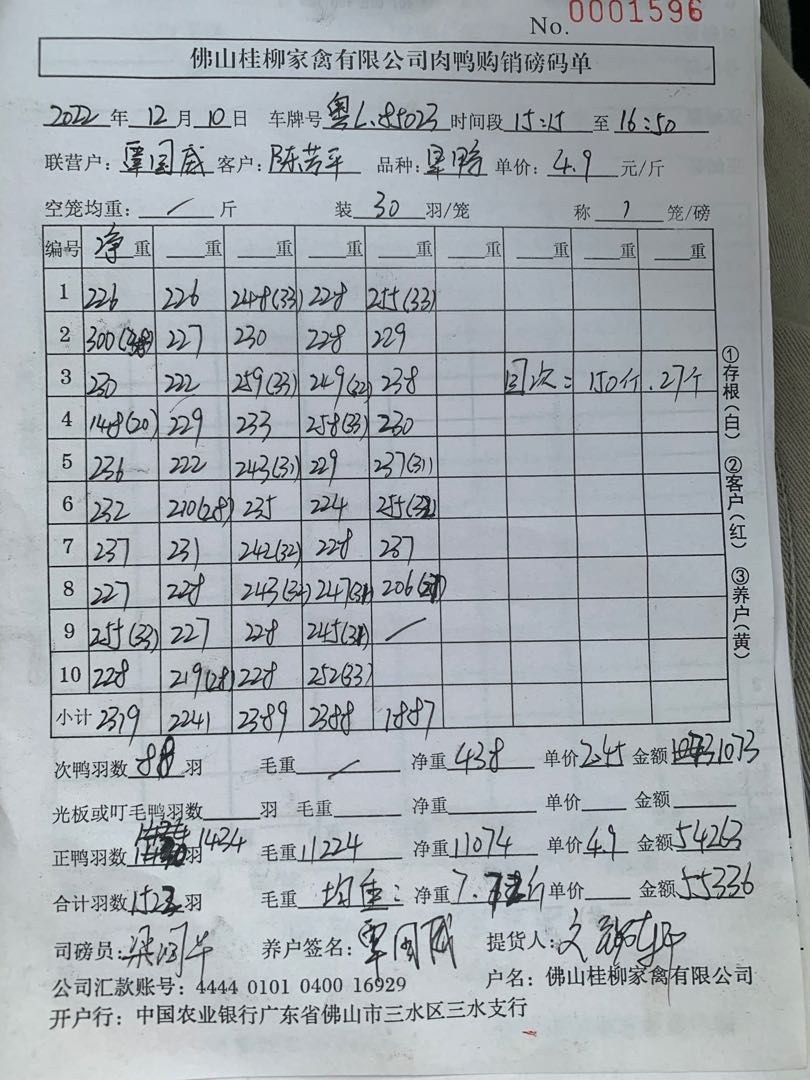 No. 0001596
佛山桂柳家禽有限公司肉鸭购销磅码单
2022年12月10日 车牌号粤L.85023时间段15:15至16:50
联营户:覃国威 客户:陈芳平 品种: 单价:4.9元/斤
空笼均重:/斤 装30羽/笼 称1笼/磅
编号 净重 重 重 重 重 重 重 重 重
1 226 226 248(33) 228 255(33)
2 300(38) 227 230 228 229
3 230 222 259(33) 249(32) 238 回次:150斤.27个
4 148(20) 229 233 258(33) 230
5 236 222 243(31) 229 237(31)
6 232 210(28) 235 224 255(32)
7 237 231 242(32) 228 237
8 227 228 243(32) 247(31) 206(27)
9 255(33) 227 228 245(31) /
10 228 219(28) 228 252(33)
小计 2319 2241 2389 2388 1887
次鸭羽数88羽 毛重/ 净重438 单价2.45 金额1073
光板或叮毛鸭羽数羽 毛重 净重 单价 金额
正鸭羽数1434羽 毛重11224 净重11074 单价4.9 金额54263
合计羽数1522羽 毛重均重: 净重7. 斤 单价 金额55336
司磅员: 养户签名:覃国威 提货人:
公司汇款账号:4444 0101 0400 16929 户名:佛山桂柳家禽有限公司
开户行:中国农业银行广东省佛山市三水区三水支行
①存根(白) ②客户(红) ③养户(黄)